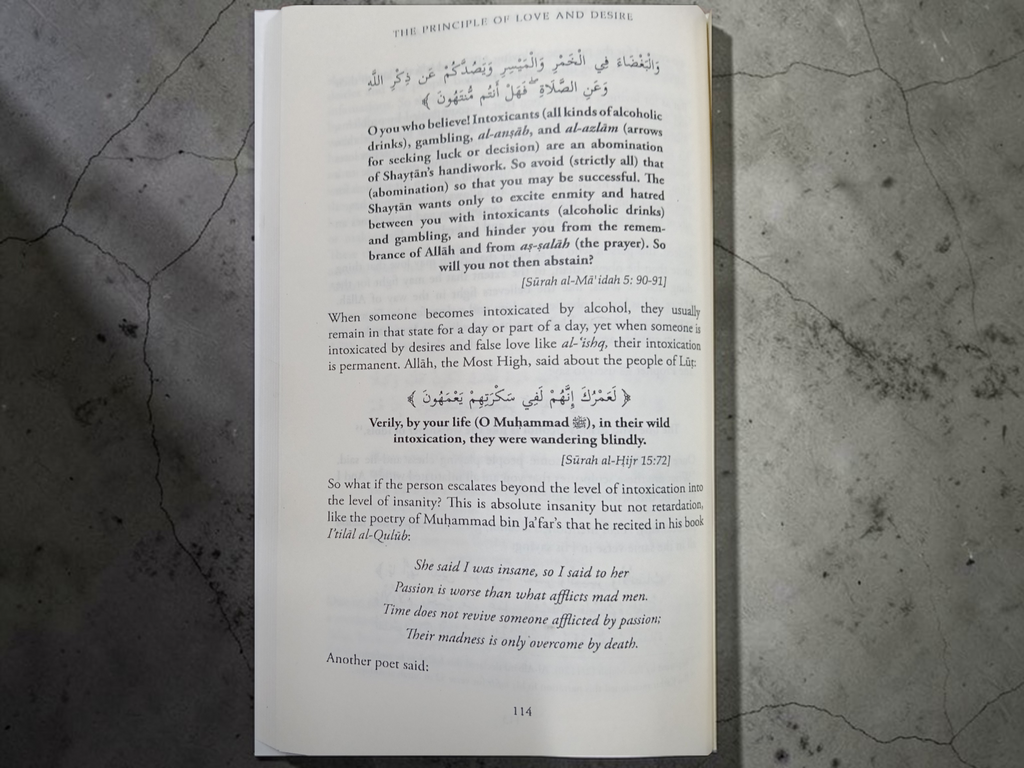 THE PRINCIPLE OF LOVE AND DESIRE
وَالْبَغْضَاءَ فِي الْخَمْرِ وَالْمَيْسِرِ وَيَصُدَّكُمْ عَن ذِكْرِ اللَّهِ
وَعَنِ الصَّلَاةِ ۖ فَهَلْ أَنتُم مُّنتَهُونَ ﴾
O you who believe! Intoxicants (all kinds of alcoholic
drinks), gambling, al-anṣāb, and al-azlām (arrows
for seeking luck or decision) are an abomination
of Shayṭān's handiwork. So avoid (strictly all) that
(abomination) so that you may be successful. The
Shayṭān wants only to excite enmity and hatred
between you with intoxicants (alcoholic drinks)
and gambling, and hinder you from the remem-
brance of Allāh and from aṣ-ṣalāh (the prayer). So
will you not then abstain?
[Sūrah al-Mā'idah 5: 90-91]
When someone becomes intoxicated by alcohol, they usually
remain in that state for a day or part of a day, yet when someone is
intoxicated by desires and false love like al-'ishq, their intoxication
is permanent. Allāh, the Most High, said about the people of Lūṭ:
﴿ لَعَمْرُكَ إِنَّهُمْ لَفِي سَكْرَتِهِمْ يَعْمَهُونَ ﴾
Verily, by your life (O Muḥammad ﷺ), in their wild
intoxication, they were wandering blindly.
[Sūrah al-Ḥijr 15:72]
So what if the person escalates beyond the level of intoxication into
the level of insanity? This is absolute insanity but not retardation,
like the poetry of Muḥammad bin Ja'far's that he recited in his book
I'tilāl al-Qulūb:
She said I was insane, so I said to her
Passion is worse than what afflicts mad men.
Time does not revive someone afflicted by passion;
Their madness is only overcome by death.
Another poet said:
114